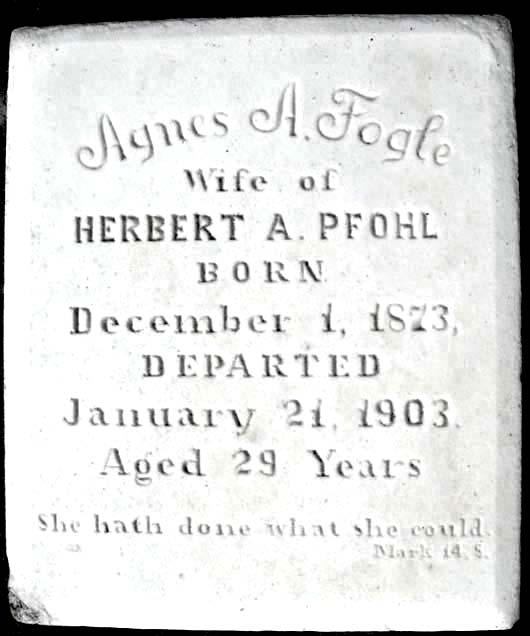 Agnes A. Fogle
Wife of
HERBERT A. PFOHL
BORN
December 1, 1873,
DEPARTED
January 21, 1903.
Aged 29 Years
She hath done what she could.
Mark 14. 8.